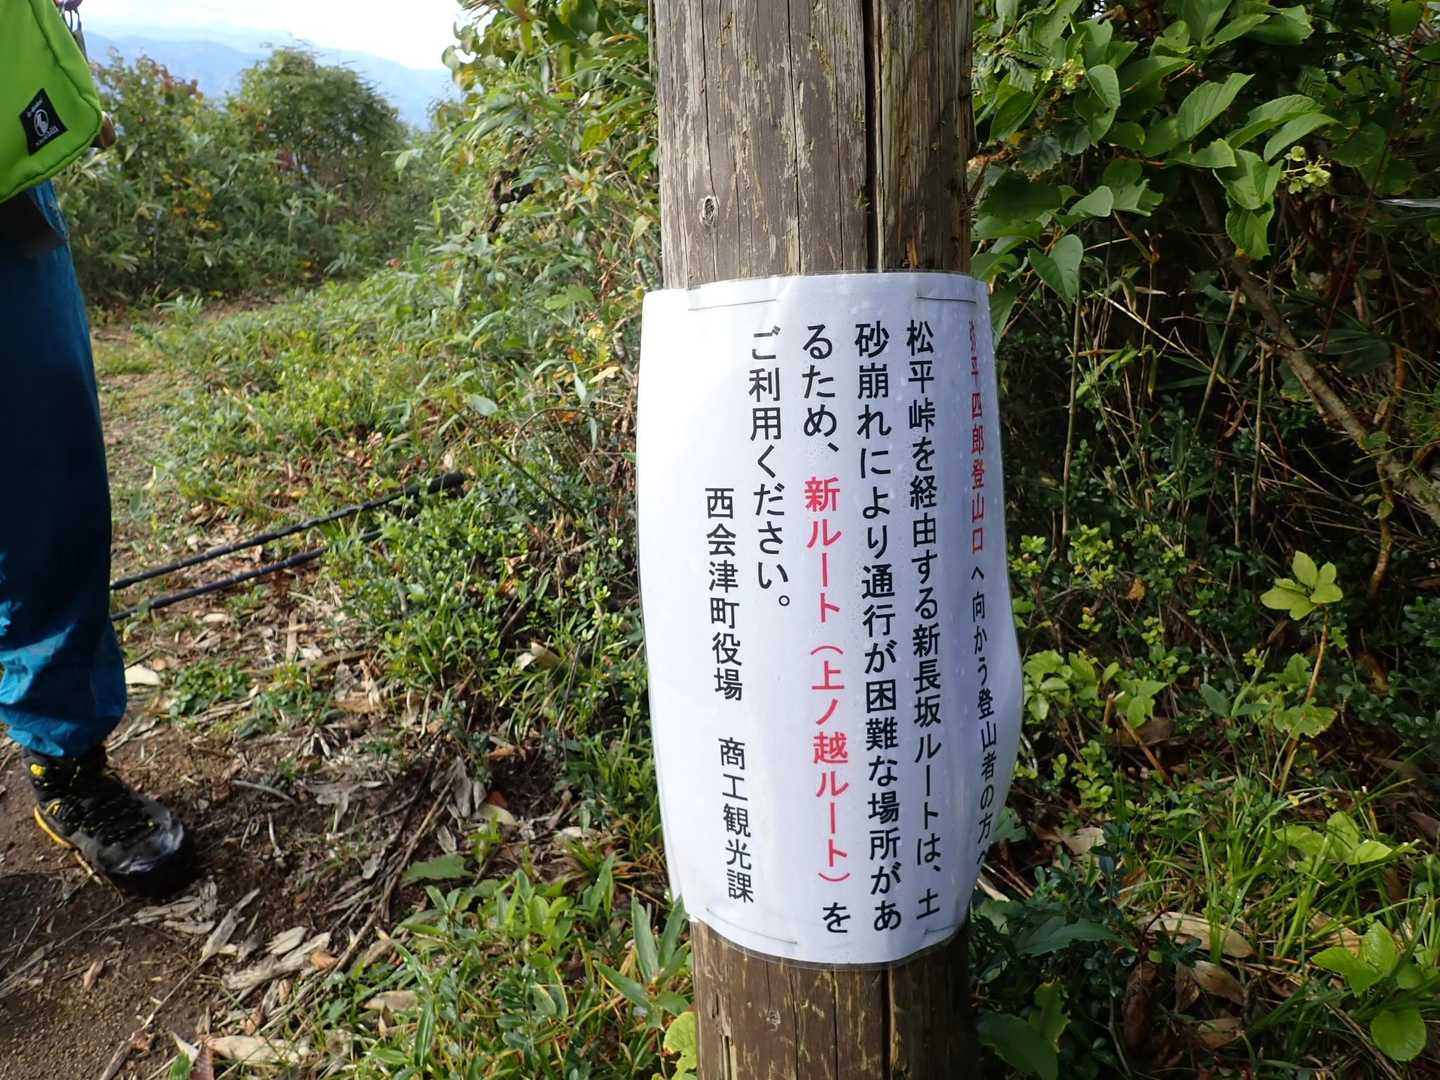 弥平四郎登山口へ向かう登山者の方へ
松平峠を経由する新長坂ルートは、土
砂崩れにより通行が困難な場所があ
るため、新ルート（上ノ越ルート）を
ご利用ください。
西会津町役場　商工観光課